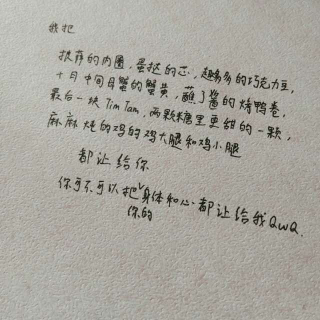 我把
披萨的内圈，蛋挞的芯，趣多多的巧克力豆，
十月中间母蟹的蟹黄，蘸了酱的烤鸭卷，
最后一块TimTam，两颗糖里更甜的一颗，
麻麻炖的鸡的鸡大腿和鸡小腿
都让给你
你可不可以把你的身体和心都让给我QwQ.